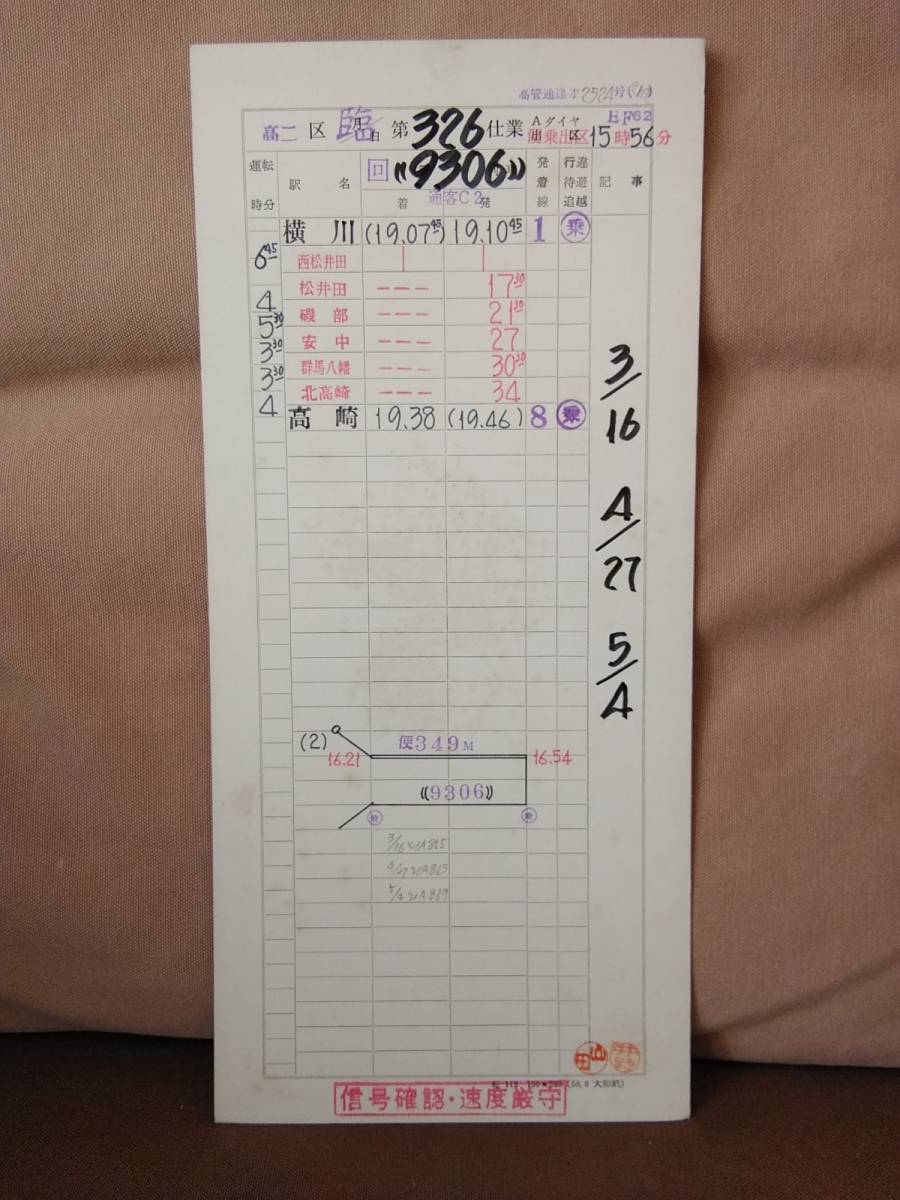 高管通達才2524号
EF62
高二 区 臨 月 日 第 326 仕業 Aダイヤ 便乗出区 15時56分
運転時分 駅名 回 《9306》 通客C2 着 発 発着線 行違 待避 追越 記事
横川 (19.07 45) 19.10 45 1 乗
6 45
西松井田 | |
松井田 --- 17 30
4
磯部 --- 21 30
5 30
安中 --- 27
3 30
群馬八幡 --- 30 30
3 30
北高崎 --- 34
4
高崎 19.38 (19.46) 8 乗
3/16
4/27
5/4
(2) 16.21 便349M 16.54
《9306》
信号確認・速度厳守